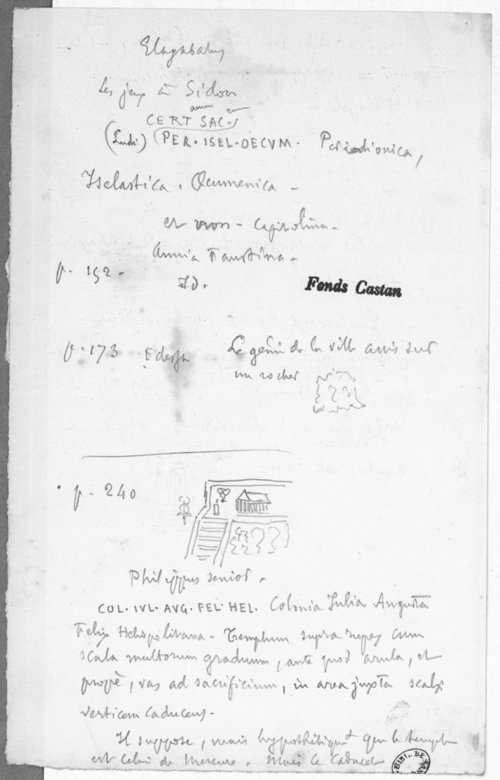 Elagabalus
Les jeux à Sidon
CERT SAC.
(Ludi) (PER. ISEL. OECVM. Periodionica,
Iselastica. Œcumenica -
et non - Capitolina -
Annia Faustina -
p. 192 - ID. Fonds Castan
p. 173 Edessa Le génie de la ville assis sur
un rocher
p. 240
Philippus senior.
COL. IVL. AVG. FEL. HEL. Colonia Julia Augusta
Felix Heliopolitana - Templum supra rupes cum
scala multorum graduum, ante quod arula, et
propè, vas ad sacrificium, in area juxta scalæ
verticem caduceus -
Il suppose, mais hypothétiquemt que le temple
est celui de Mercure. Mais le Caducée
BIBL. DE